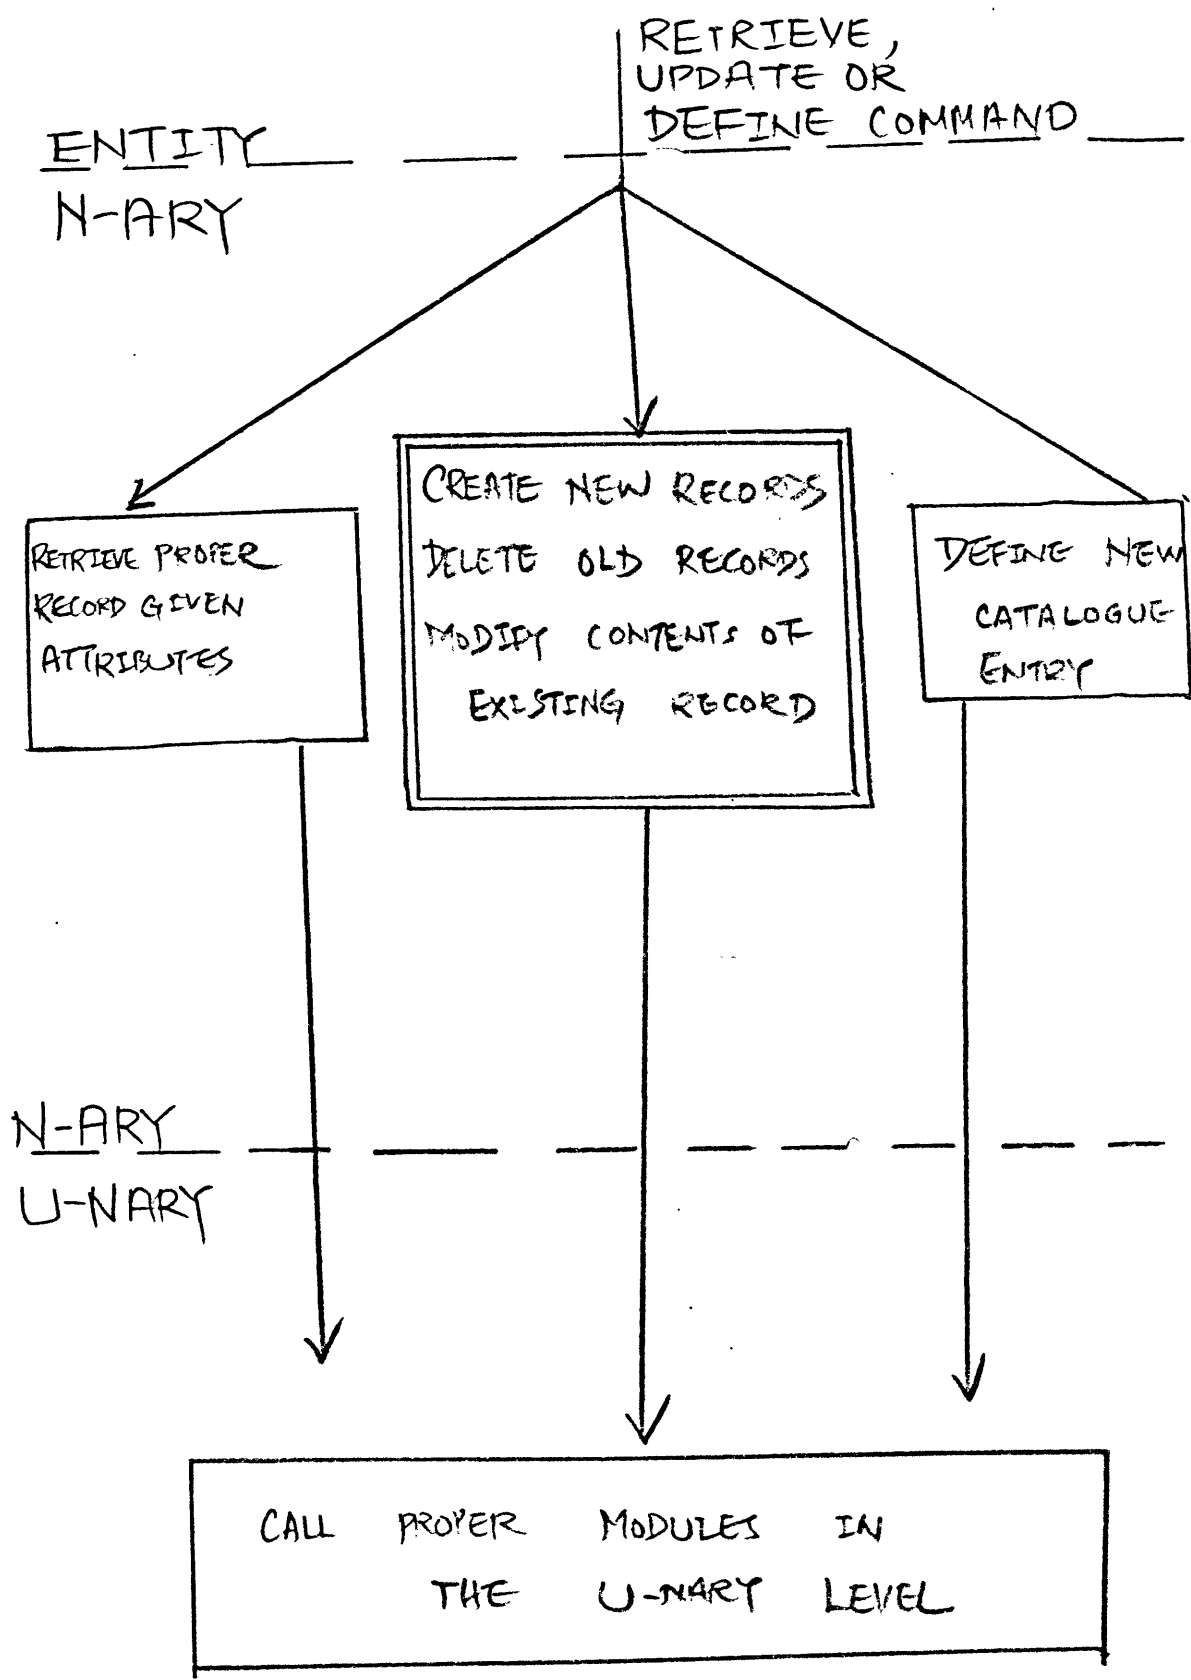 RETRIEVE,
UPDATE OR
DEFINE COMMAND
ENTITY
N-ARY
RETRIEVE PROPER
RECORD GIVEN
ATTRIBUTES
CREATE NEW RECORDS
DELETE OLD RECORDS
MODIFY CONTENTS OF
EXISTING RECORD
DEFINE NEW
CATALOGUE
ENTRY
N-ARY
U-NARY
CALL PROPER MODULES IN
THE U-NARY LEVEL